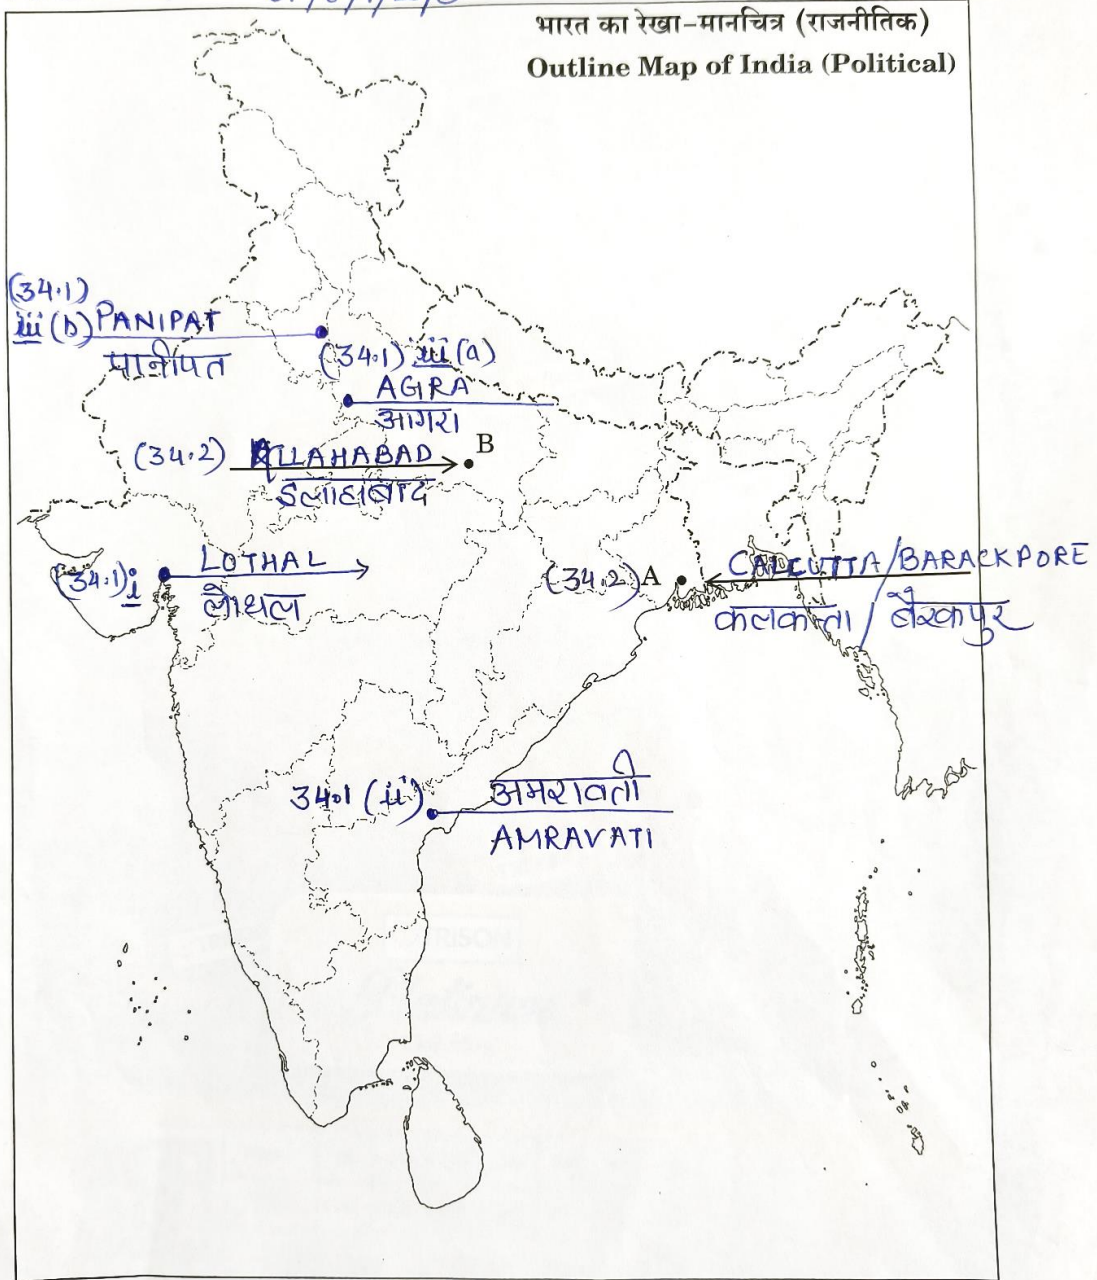 भारत का रेखा-मानचित्र (राजनीतिक)
Outline Map of India (Political)
(34.1)
iii (b) PANIPAT
पानीपत
(34.1) iii (a)
AGRA
आगरा
B
(34.2) ALLAHABAD
इलाहाबाद
(34.1) i LOTHAL
लोथल
(34.2) A CALCUTTA/BARACKPORE
कलकत्ता / बैरकपुर
34.1 (ii) अमरावती
AMRAVATI